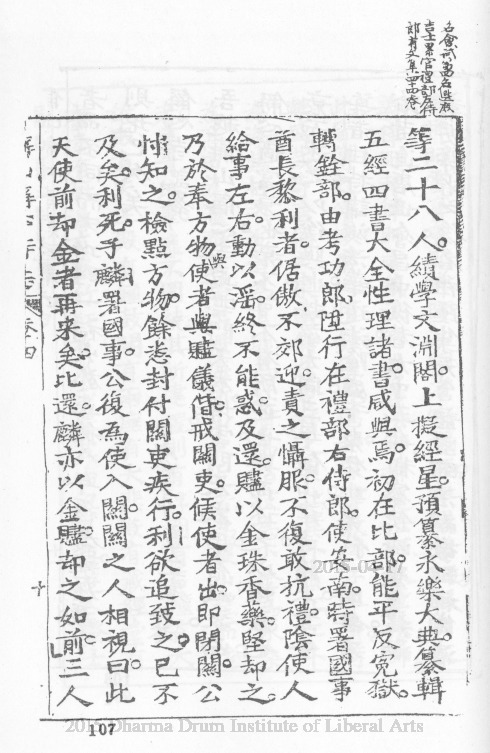 等二十八人。績學文淵閣。上擬經星。預纂永樂大典。纂輯
五經四書大全性理諸書。咸與焉。初在比部。能平反冤獄。
轉銓部。由考功郎。陞行在禮部右侍郎。使安南。時署國事
酋長黎利者。倨傲不郊迎。責之懾服。不復敢抗禮。陰使人
給事左右。動以滛。終不能惑。及還。贐以金珠香藥。堅却之。
乃於奉方物使者與贐儀偕。戒關吏。候使者出。即閉關。公
悕知之。檢點方物。餘悉封付關吏。疾行。利欲追致之。已不
及矣。利死。子麟署國事。公復為使入關。關之人相視曰。此
天使前却金者再来矣。比還。麟亦以金贐。却之如前。三人
卷四
107
2015-04-17
2015 Dharma Drum Institute of Liberal Arts